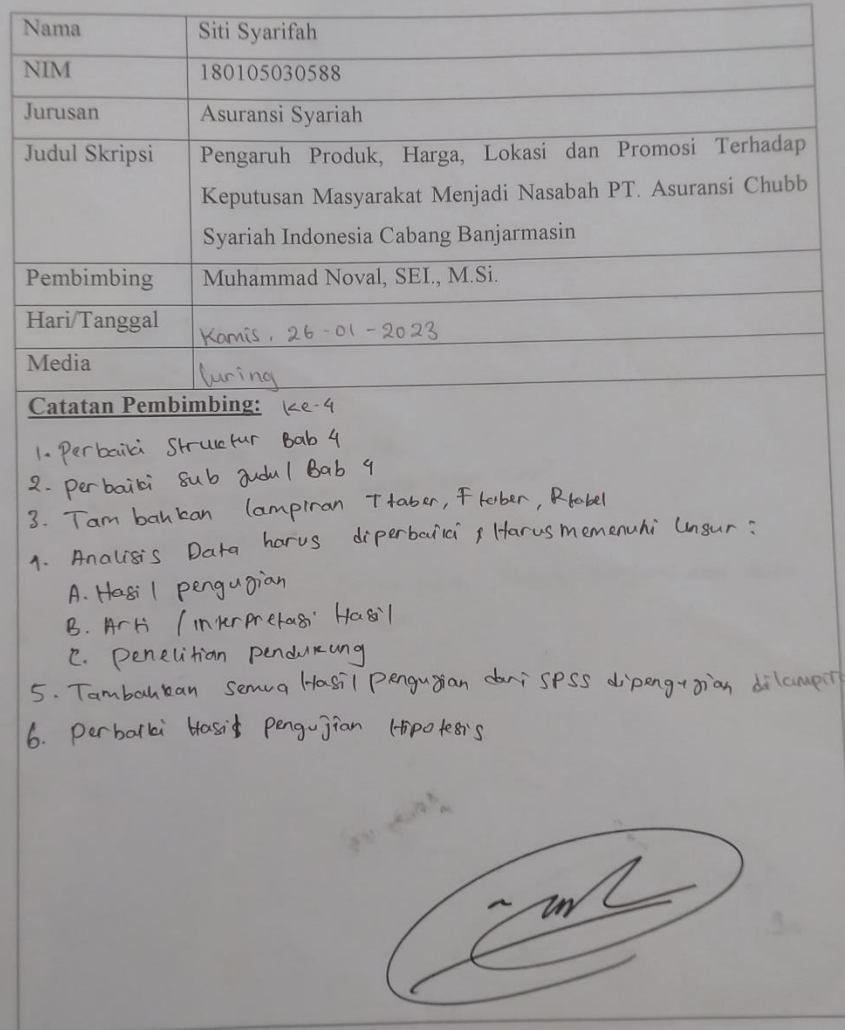 Nama Siti Syarifah
NIM 180105030588
Jurusan Asuransi Syariah
Judul Skripsi Pengaruh Produk, Harga, Lokasi dan Promosi Terhadap
Keputusan Masyarakat Menjadi Nasabah PT. Asuransi Chubb
Syariah Indonesia Cabang Banjarmasin
Pembimbing Muhammad Noval, SEI., M.Si.
Hari/Tanggal Kamis, 26-01-2023
Media luring
Catatan Pembimbing: ke-4
1. Perbaiki Struktur Bab 4
2. perbaiki sub Judul Bab 4
3. Tambahkan lampiran Ttaber, Ftaber, Rtabel
4. Analisis Data harus diperbaiki & Harus memenuhi Unsur :
A. Hasil pengujian
B. Arti / interpretasi Hasil
C. penelitian pendukung
5. Tambahkan semua Hasil pengujian dari SPSS dipengujian
6. perbaiki Hasil pengujian Hipotesis